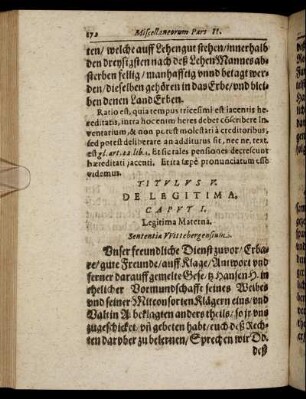 172 Miscellaneorum Pars II.
ten/ welche auff Lehengut stehen/ innerhalb
den dreysigsten nach deß LehenMannes ab-
sterben fellig/ manhafftig vnnd betagt wer-
den/ dieselben gehören in das Erbe/ vnd blei-
ben denen Land Erben.
Ratio est, quia tempus tricesimi est jacentis hæ-
reditatis, intra hoc enim heres debet cōscribere In-
ventarium, & non potest molestari à creditoribus,
sed potest deliberare an additurus sit, nec ne. text.
est gl. art. 22. lib. 1. Et sic tales pensiones decrescunt
hæreditati jacenti. Et ita sæpè pronunciatum esse
videmus.
TITVLVS V.
DE LEGITIMA.
CAPVT I.
Legitima Materna.
Sententia Wittebergensium.
Vnser freundliche Dienst zuvor/ Erba-
re/ gute Freunde/ auff Klage/ Antwort vnd
ferner darauff gemelte Gesetz Hansen H. in
ehelicher Vormundschafft seines Weibes
vnd seiner Mitconsorten Klägern eins/ vnd
Valtin A beklagten anders theils/ so jr vns
zugeschicket/ vñ gebeten habt/ euch deß Rech-
ten darüber zu belernen/ Sprechen wir Do-
deß